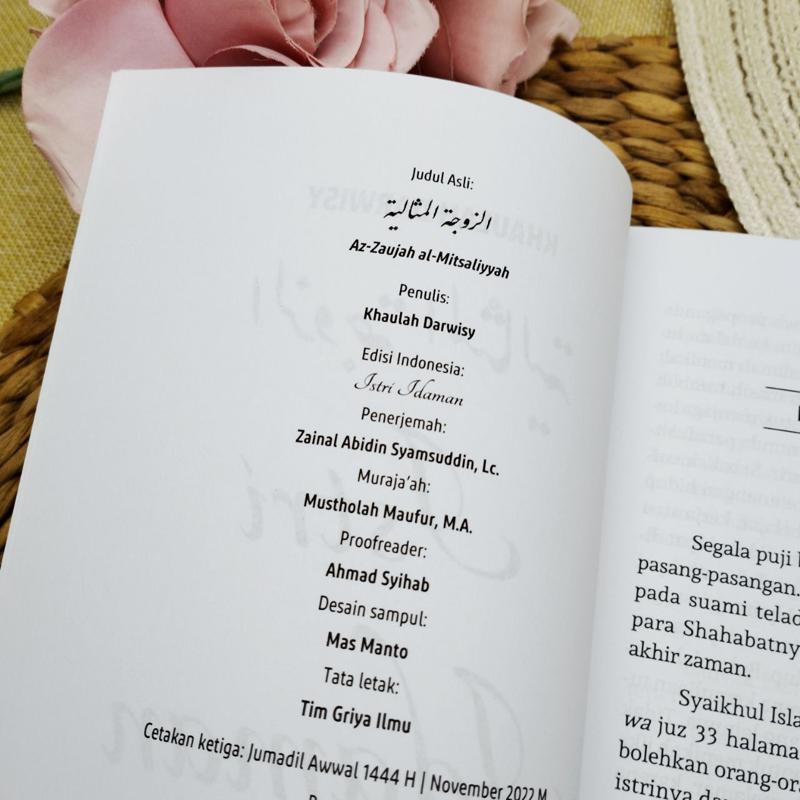 Judul Asli:
الزوجة المثالية
Az-Zaujah al-Mitsaliyyah
Penulis:
Khaulah Darwisy
Edisi Indonesia:
Istri Idaman
Penerjemah:
Zainal Abidin Syamsuddin, Lc.
Muraja'ah:
Mustholah Maufur, M.A.
Proofreader:
Ahmad Syihab
Desain sampul:
Mas Manto
Tata letak:
Tim Griya Ilmu
Cetakan ketiga: Jumadil Awwal 1444 H | November 2022 M
Segala puji
pasang-pasangan.
pada suami telad
para Shahabatny
akhir zaman.
Syaikhul Isla
wa juz 33 halama
bolehkan orang-or
istrinya